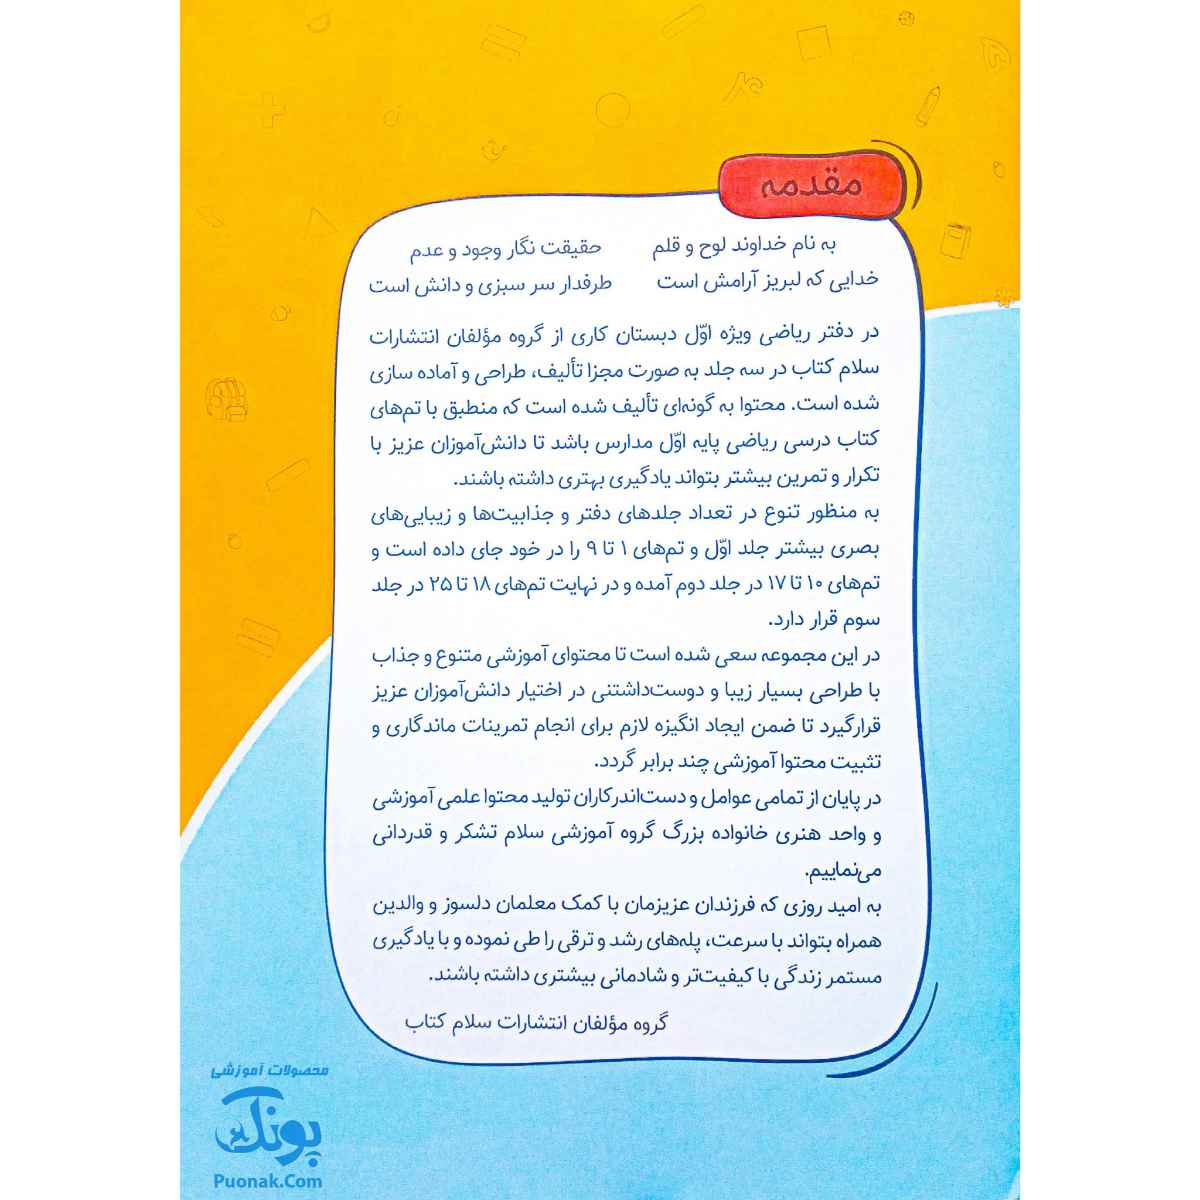 مقدمه
به نام خداوند لوح و قلم حقیقت نگار وجود و عدم
خدایی که لبریز آرامش است طرفدار سر سبزی و دانش است
در دفتر ریاضی ویژه اوّل دبستان کاری از گروه مؤلفان انتشارات
سلام کتاب در سه جلد به صورت مجزا تألیف، طراحی و آماده سازی
شده است. محتوا به گونه‌ای تألیف شده است که منطبق با تم‌های
کتاب درسی ریاضی پایه اوّل مدارس باشد تا دانش‌آموزان عزیز با
تکرار و تمرین بیشتر بتواند یادگیری بهتری داشته باشند.
به منظور تنوع در تعداد جلدهای دفتر و جذابیت‌ها و زیبایی‌های
بصری بیشتر جلد اوّل و تم‌های ۱ تا ۹ را در خود جای داده است و
تم‌های ۱۰ تا ۱۷ در جلد دوم آمده و در نهایت تم‌های ۱۸ تا ۲۵ در جلد
سوم قرار دارد.
در این مجموعه سعی شده است تا محتوای آموزشی متنوع و جذاب
با طراحی بسیار زیبا و دوست‌داشتنی در اختیار دانش‌آموزان عزیز
قرارگیرد تا ضمن ایجاد انگیزه لازم برای انجام تمرینات ماندگاری و
تثبیت محتوا آموزشی چند برابر گردد.
در پایان از تمامی عوامل و دست‌اندرکاران تولید محتوا علمی آموزشی
و واحد هنری خانواده بزرگ گروه آموزشی سلام تشکر و قدردانی
می‌نماییم.
به امید روزی که فرزندان عزیزمان با کمک معلمان دلسوز و والدین
همراه بتواند با سرعت، پله‌های رشد و ترقی را طی نموده و با یادگیری
مستمر زندگی با کیفیت‌تر و شادمانی بیشتری داشته باشند.
گروه مؤلفان انتشارات سلام کتاب
محصولات آموزشی
پونک
Puonak.Com